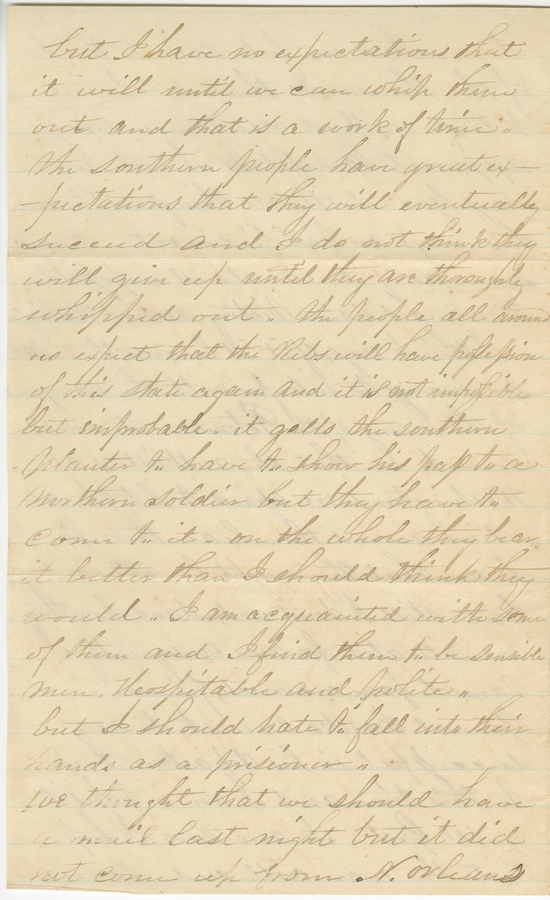 but I have no expectations that
it will until we can whip them
out and that is a work of time.
the southern people have great ex-
-pectations that they will eventually
succeed and I do not think they
will give up until they are thoroughly
whipped out. the people all around
us expect that the Rebs will have possession
of this state again and it is not impossible
but improbable. it galls the southern
planter to have to show his pass to a
Northern soldier but they have to
come to it. on the whole they bear
it better than I should think they
would. I am acquainted with some
of them and I find them to be sensible
men. Hospitable and polite.
but I should hate to fall into their
hands as a prisioner.
we thought that we should have
a mail last night but it did
not come up from N. Orleans